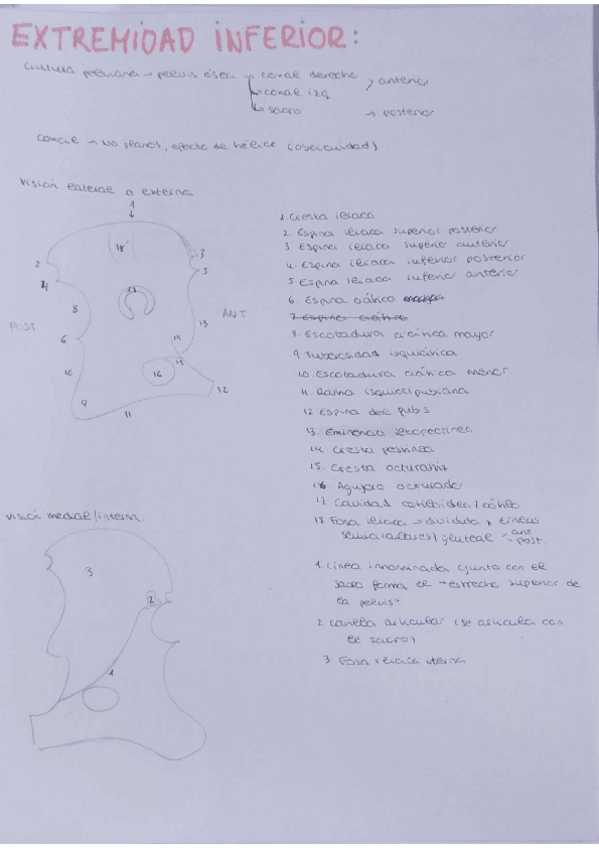 EXTREMIDAD INFERIOR:
Cintura pelviana → pelvis ósea → coxal derecho
→ coxal izq
→ sacro
anterior
→ posterior
Coxal → No planos, efecto de hélice (oblicuidad)
Visión lateral o externa
1
18
2
3
4
5
8
6
10
9
11
16
15
14
13
12
17
POST
ANT
1. Cresta iliaca
2. Espina iliaca superior posterior
3 Espina iliaca superior anterior
4. Espina iliaca inferior posterior
5. Espina iliaca inferior anterior
6. Espina ciática
7. Espina ciática
8. Escotadura ciática mayor
9 Tuberosidad isquiática
10. Escotadura ciática menor
11. Rama isquiotipubiana
12 Espina del pubis
13. Eminencia ileopectinea
14. Cresta pectinea
15. Cresta obturatriz
16 Agujero obturador
17 Cavidad cotiloidea / cótilo
18 Fosa iliaca → dividida x líneas
semicirculares / gluteal - ant.
post.
Visión medial/interna
3
2
1
1. Línea innominada (junto con el
sacro forma el "estrecho superior de
la pelvis"
2. Carilla articular (se articula con
el sacro)
3 Fosa iliaca interna